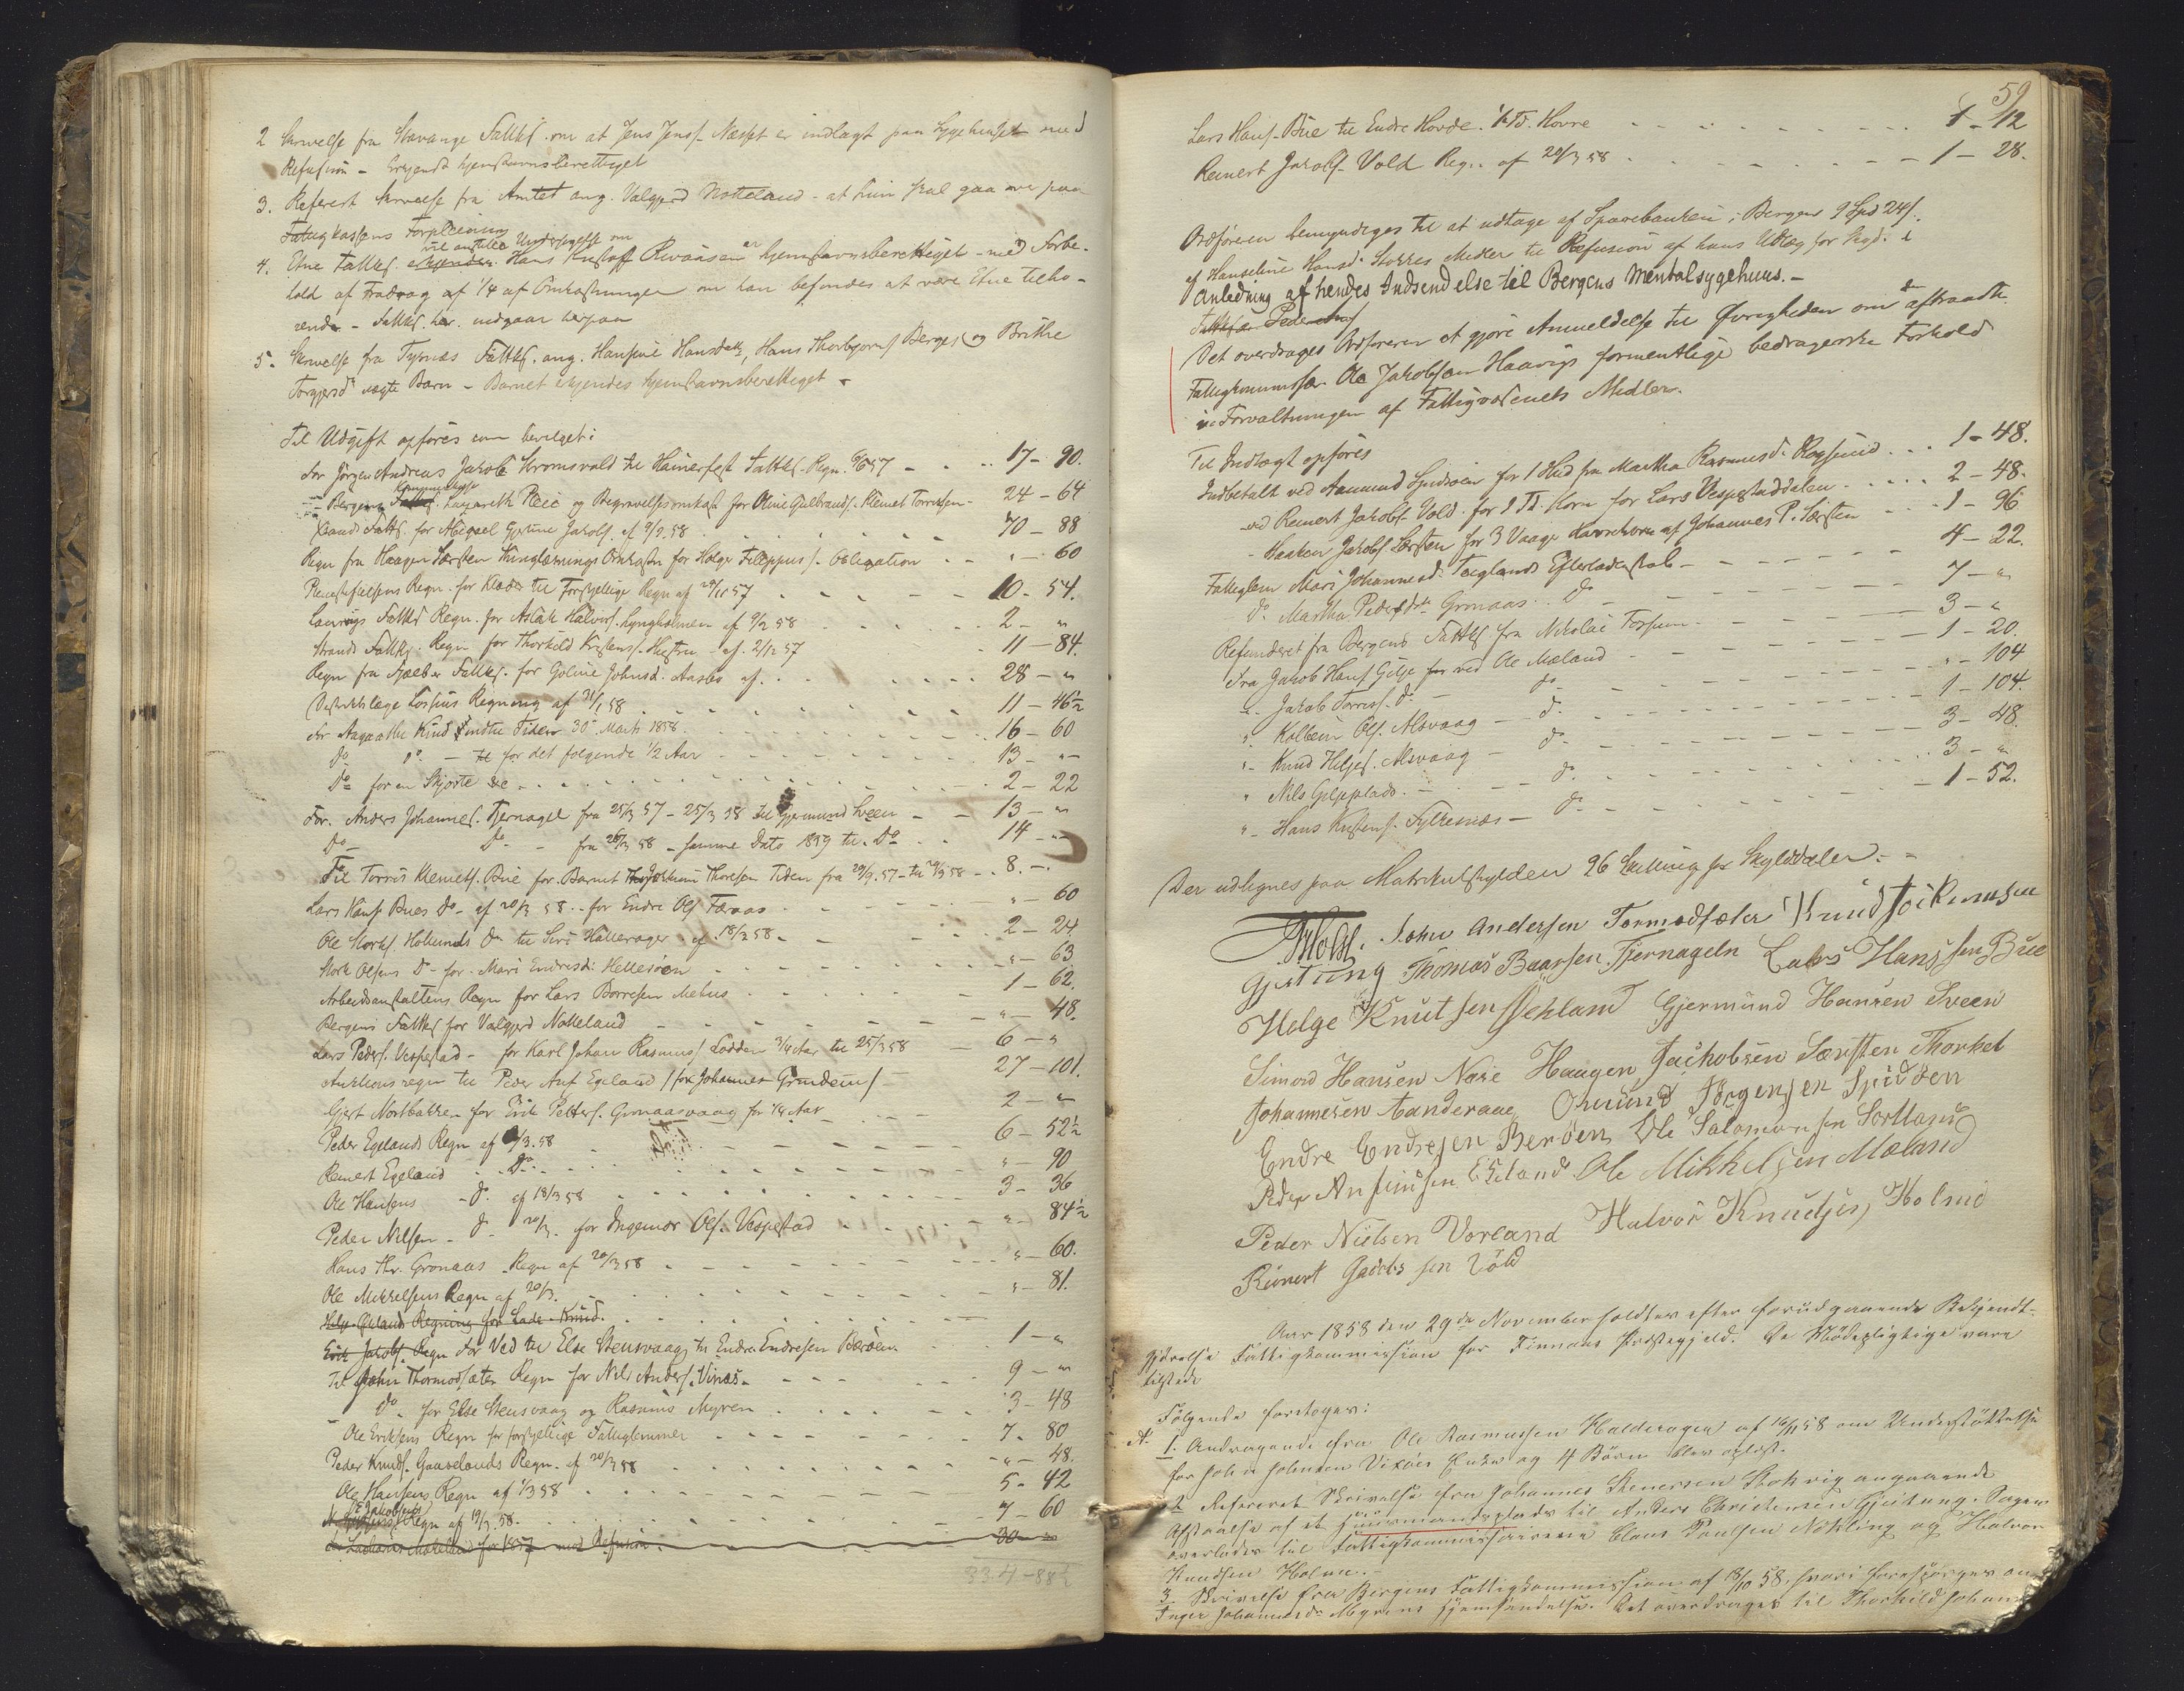 2 Skrivelse fra Stavange Fattks. om at Jens Jens. Næsset er indlagt paa Sygehuset med
Refusion - Erkjendt hjemstavnsberettiget
3. Refereret Skrivelse fra Amtet ang. Valgjerd Notteland - at hun skal gaa over paa
Fattigkassens Forpleining
vil anstille Undersøgelse om
4. Etne Fattks. erkjender Hans Kristoff er hjemstavnsberettiget - med Forbe-
hold af Fradrag af 1/4 af Omkostninger om han befindes at være Etne tilhø-
rende - Fattks. her. indgaar herpaa
5. Skrivelse fra Tysnæs Fattks. ang. Hansine Hansdatr, Hans Thorbjørns. Berges og Brithe
Torgersdr uægte Barn - Barnet erkjendes hjemstavnsberettiget -
Til Udgift opføres som bevilget:
for Jørgen Andreas Jakobs Stromsvold til Hamerfest Fattks. Regn. 57 - 17 - 90.
Kommunekasse
- Bergens Lazareth Pleie og Begravelsesomkost. for Oline Gulbrands. Klemet Torresen - 24 - 64
Fattks. for Abigael Gurine Jakobs. af 9/3 58 . 70 - 88
Regn fra Haagen Særsten Thinglæsnings Omkostn for Helge Filippus's. Obligation - " - 60
Regn. for Klæder til Forskjellige Regn af 29/11 57 . 10 - 54.
Fattks Regn. for Aslak Halvors. Lyngholmen af 9/2 58 . 2 - "
Strands Fattks. Regn for Thorkild Kristens. af. 2/12 57 11 - 84.
Regn fra Fjælber Fattks. for Goline Johnsd. Aasbø af. . 28 - "
Distriktslæge Lossius Regning af 31/1 58 . 11 - 46½
for Aagaathe Knud indtil Tiden 30 Marts 1858 . 16 - 60
Do Do - for det følgende 1/2 Aar 13 - "
Do for en Skjorte 2 - 22
For. Anders Johannes. Tjernagel fra 25/3 57 - 25/3 58 til Gjermund Sveen - 13 - "
Do - Do - fra 25/3 58 - samme Dato 1859 til Do 14 - "
Til Torris Klemets. Bue for Barnet Johan Thoresen Tiden fra 29/9. 57 - til 29/3 58 - 8. -
Lars Hans. Bues Do - af 20/3 58 - for Endre Ols Færaas " - 60
Ole Stork. Holunds Do til Siri Hallerager af 18/3 58 - 2 - 24
Stork Olsens Do - for Mari Endresd. Hellesøen " - 63
Arbeidsanstaltens Regn for Lars Borresen Mehus 1 - 62.
Bergens Fattks for Valgjerd Notteland " - 48.
Lars Peders. Vespestad - for Karl Johan Rasmus Lodden 3/4 Aar til 25/3 58 6 - "
Auktionsregn til Peder Ans. Egeland / for Johannes Grindeim / 27 - 101.
Gjert Nordbakken for Erik Petters. Gronaasvaag for 1/4 Aar 2 - "
Peder Egelands Regn af /3. 58 6 - 52½
Reinert Egeland Do. " - 90
Ole Hansens - Do. af 18/3 58 3 - 36
Peder Nilsen - Do 20/3. for Ingemor Ols. Vespestad " - 84½
Hans Chr. Gronaas - Regn af 20/3 58 " - 60.
Ole Mikkelsens Regn af 20/3. " - 81.
Helge Ølands Regning for Lade-Knud.
Erik Jakobs. Regn for Ved til Else Stensvaag til Endre Endresen Berøen 1 - "
Til John Thormodsæter Regn for Nils Anders. Vinæs. 9 - "
Do. for Else Stensvaag og Rasmus Myren 3 - 48
Ole Eriksens Regn for forskjellige Fattiglemmer 7 - 80
Peder Knuds. Gaaselands Regn. af 20/3 58 " - 48.
Ole Hansens Regn af 1/3 58 5 - 42
E. Jakobsens
Regn af 19/3. 58. 7 - 60
for 1857 med Refusion. 30 - "
334 - 88½
59
Lars Hans. Bue til Endre Hovde. ½ Td. Havre 1 - 12
Reinert Jakobs. Vold Regn. af 20/3 58 1 - 28.
Ordføreren bemyndiges til at udtage af Sparebanken i Bergen 9 Spd 24 s.
af Hanseline Hansd. Stokkes Midler til Refusion af hans Udlæg for Skyds i
Anledning af hendes Indsendelse til Bergens Mentalsygehuus. -
Det overdrages Ordføreren at gjøre Anmeldelse til Øvrigheden om afstraadte
Fattigkommissær Ole Jakobsen Haavigs formentlige bedragerske Forhold
i Forvaltningen af Fattigvæsenets Midler.
Til Indtægt opføres
Indbetalt ved Aamund Spidsøen for 1 Hud fra Martha Rasmusd. Røgsund 1 - 48.
- ved Reinert Jakobs. Vold for 1 Td. Korn for Lars Vespestaddalen 2 - 48.
- Haaken Jakobs Særsten for 3 Vaage Havrekorn af Johannes P. Særsten 1 - 96
Fattiglem Mari Johannesd. Teiglands Efterladenskab 4 - 22.
Do. Martha Pedersdtr Gronaas - Do 7 - "
Refunderet fra Bergens Fattks. fra Nikolai Forsum. 3 - "
fra Jakob Hans. Gilje ved Ole Mæland 1 - 20.
" Jakob Torress. Do - Do " - 104
" Kolbein Ols. Alsvaag - Do. 1 - 104.
" Knud Heljes. Alsvaag - Do 3 - 48.
" Nils 3 - "
" Hans Kristens. Sylternæs - Do 1 - 52.
Der udlignes paa Matrikulskylden 96 Skilling pr Skylddaler. -
John Andersen Tormodsæter Knud Joakimsen
Gjeitung Thomas Baarsen Tjernageln Lars Hanssen Bue
Helge Knutsen Øchland Gjermund Hansen Sveen
Simon Hansen Nose Haagen Jachobsen Særsten Thorkel
Johannesen Aanderaae Omund Børgensen Spidsøen
Endre Endresen Berøen Ole Salomonsen Sortland
Peder Ansteinsen Eikeland Ole Mikkelsen Mæland
Peder Nielsen Vorland Halvor Knudsen Holme
Reinert Jacobsen Vold
Aar 1858 den 29de November holdtes efter forudgaaende Bekjendt-
gjørelse Fattigkommission for Finnaas Præstegjeld. De Mødepligtige vare
tilstede
Følgende foretoges:
1. Andragende fra Ole Rasmussen Halderager af 16/11 58 om Understøttelse
for John Johnsen Enke og 4 Børn blev oplæst.
2. Refereret Skrivelse fra Johannes Stenersen Stokvig angaaende
Afstaaelse af et til Anders Christensen Gjeitung. Sagen
overlades til Fattigkommissærerne Claus Poulsen Nøkling og Halvor
Knudsen Holme. -
3. Skrivelse fra Bergens Fattigkommission af 18/10 58, hvori forespørges om
Inger Johannesdr Myrens Hjemsendelse. Det overdrages til Thorkild Johan-